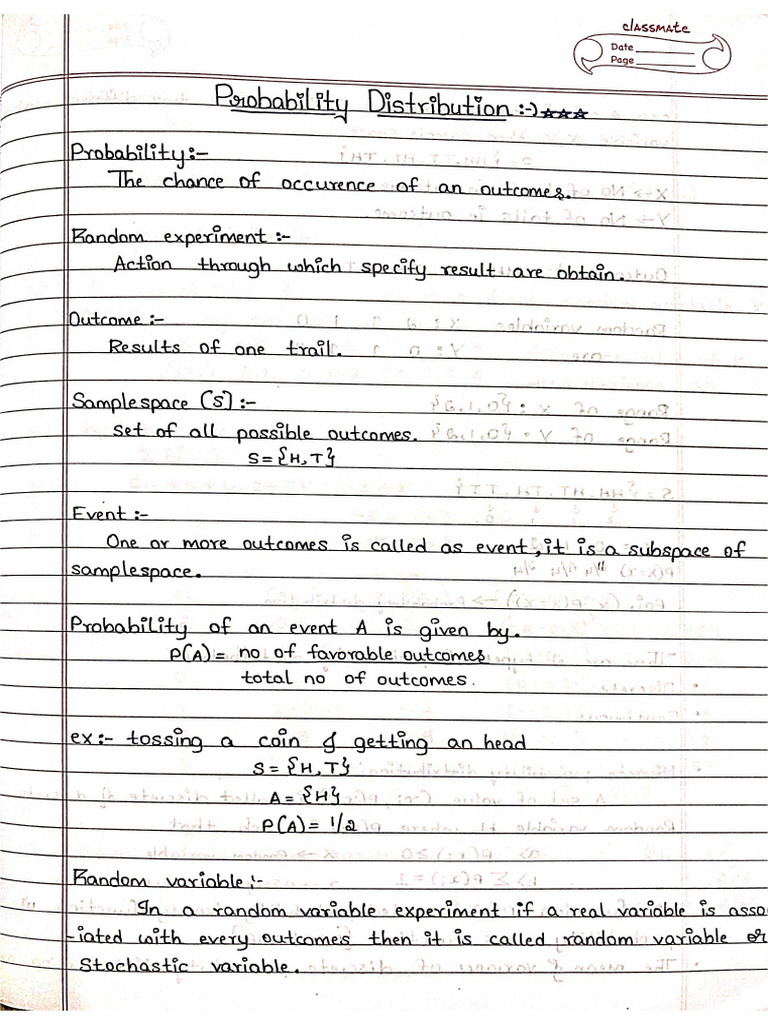 classmate
Date
Page
Probability Distribution :-) ★★★
Probability:-
The chance of occurence of an outcomes.
Random experiment :-
Action through which specify result are obtain.
Outcome :-
Results of one trail.
Samplespace (S) :-
set of all possible outcomes.
S={H,T}
Event :-
One or more outcomes is called as event, it is a subspace of
samplespace.
Probability of an event A is given by.
P(A) = no of favorable outcomes
total no of outcomes.
ex:- tossing a coin & getting an head
S={H,T}
A={H}
P(A)= 1/2
Random variable :-
In a random variable experiment if a real variable is asso
-iated with every outcomes then it is called random variable or
Stochastic variable.